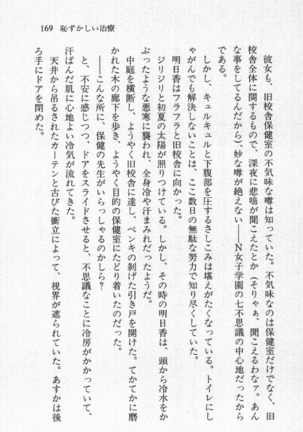 169 恥ずかしい治療
彼女も、旧校舎保健室の不気味な噂は知っていた。不気味なのは保健室だけでなく、旧
校舎全体に関するもので、深夜に悲鳴が聞こえたとか(そりゃぁ、聞こえるわなァ。あん
な事をしてるんだから)、妙な噂が絶えない――N女子学園の七不思議の中心地だったから
である。
しかし、キュルキュルと下腹部を圧するさしこみは堪えがたくなっている。トイレにし
ゃがんでも解決しないことは、ここ数日の無駄な努力で知り尽くしていた。
明日香はフラフラと旧校舎に向かった。
ジリジリと初夏の太陽が照りつけている。しかし、その時の明日香は、頭から冷水をか
ぶったような悪寒に襲われ、全身冷や汗まみれだったようだ。
中庭を横断し、ようやく旧校舎に達し、ペンキの剥げた引き戸を開けた。てかてかに磨
かれた木の廊下を歩き、ようやく目的の保健室にたどり着いたのだった。
――こんな所に、保健の先生がいらっしゃるのかしら?
と、不安に感じつつ、ドアをスライドさせると、不思議なことに冷房がかかっていて、
汗ばんだ肌に心地よい冷気が流れてきた。
天井から吊るされたカーテンと古びた衝立によって、視界が遮られていた。あすかは後
ろ手にドアを閉めた。